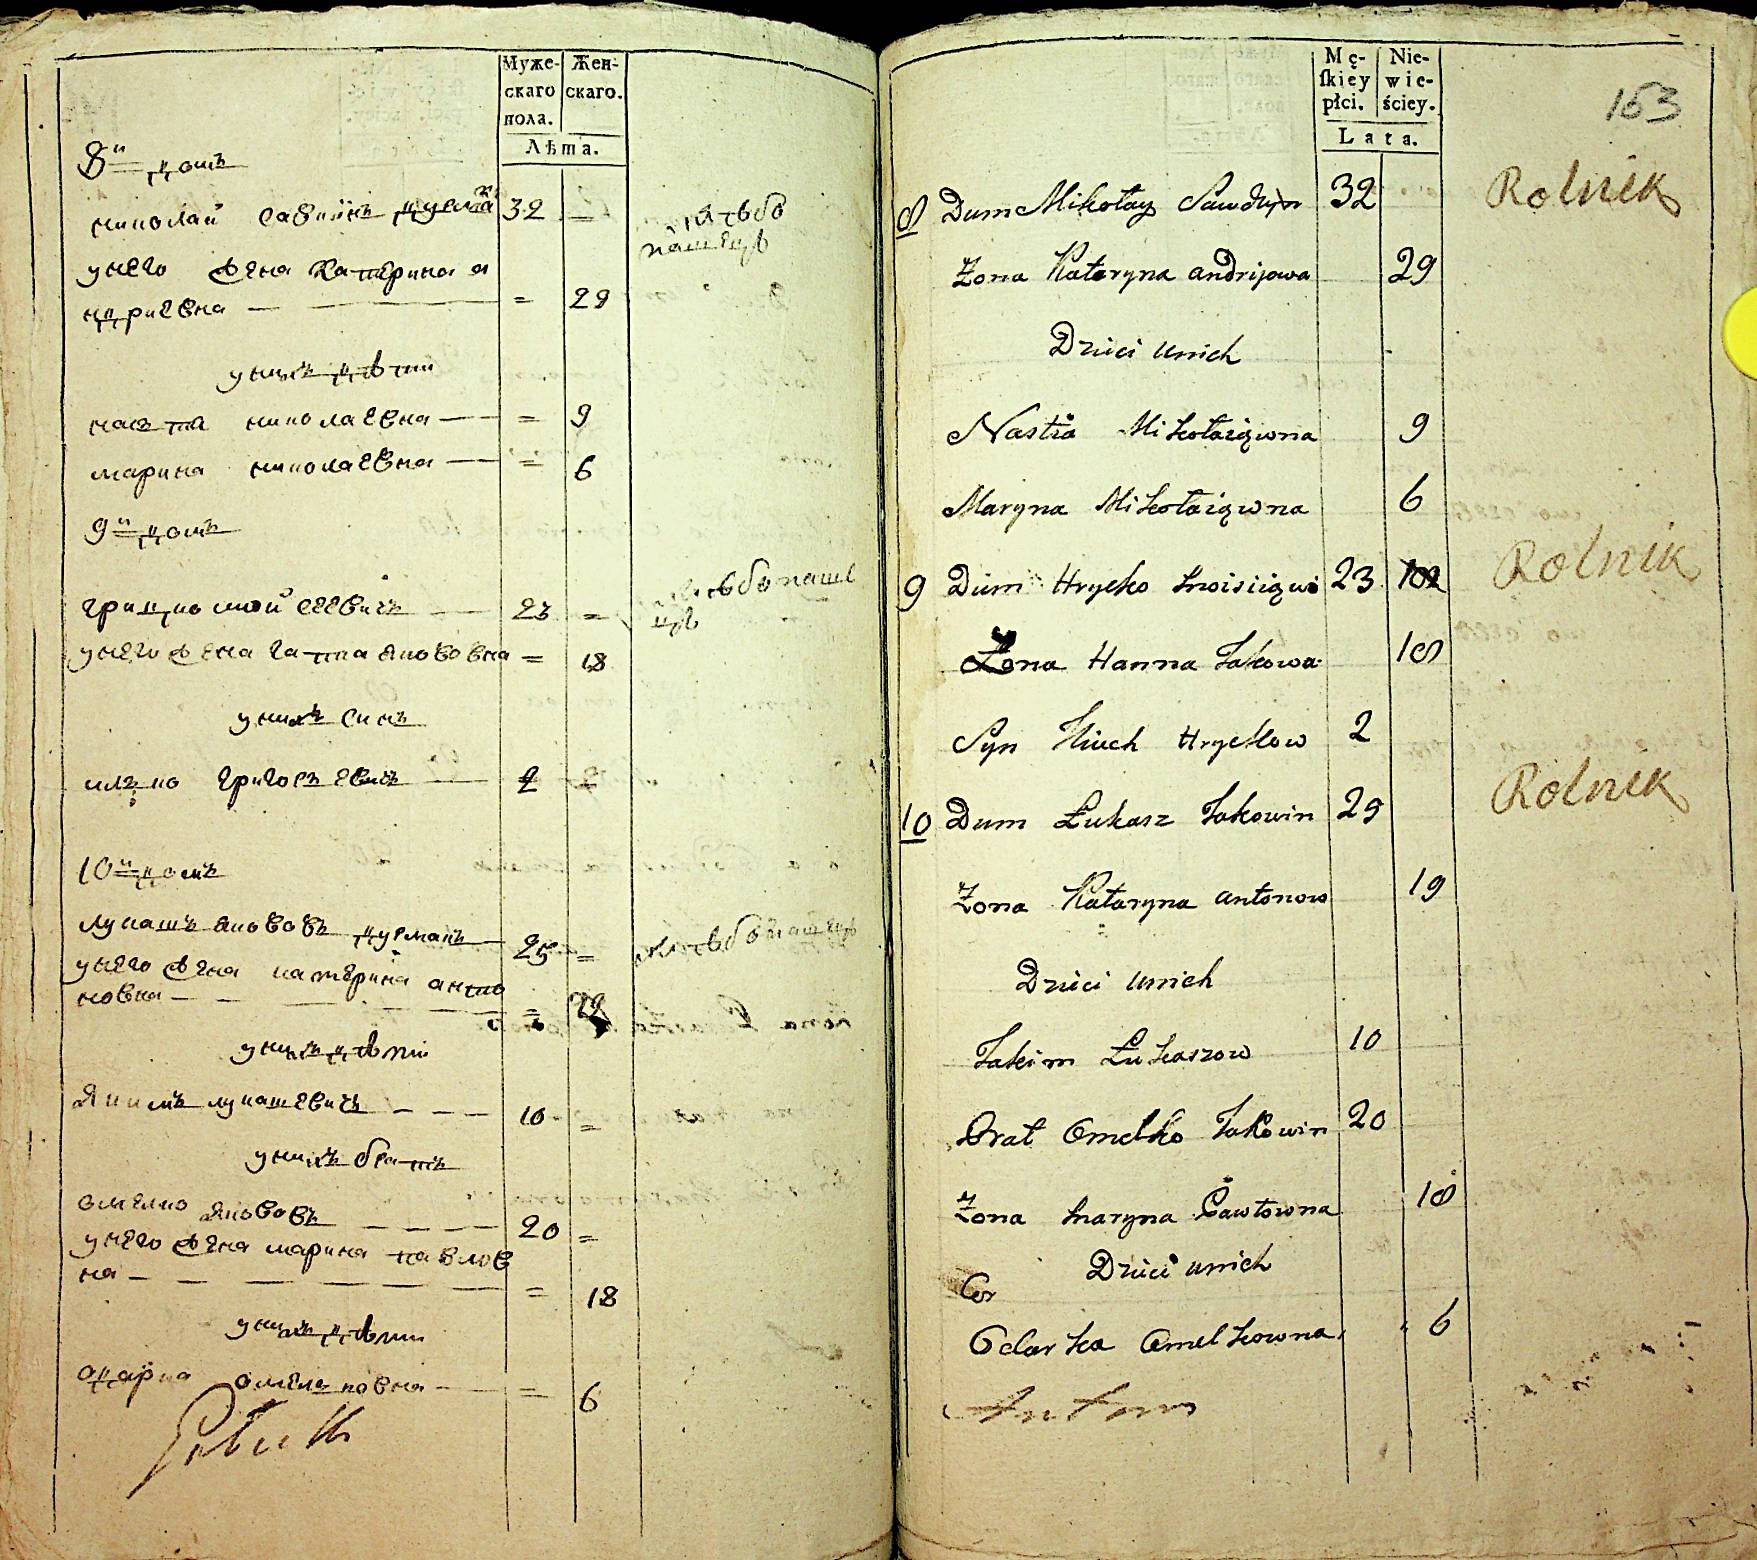 Муже-
скаго
пола.
Жен-
скаго.
Лѣта.
8й домъ
николай савинъ 32 —
хлѣбо
пашецъ
унего жена катерина а
ндриевна — = 29
унихъ дѣти
наста николаевна — = 9
марина николаевна — = 6
9й домъ
грицко мойсеевичъ — 23 =
хлѣбопаше
цъ
унего жена ганна якововна = 18
унихъ синъ
илько григорьевичъ — 2
10й домъ
лукашъ якововъ дурманъ — 25 =
хлѣбопашецъ
унего жена катерина анто
новна — =
унихъ дѣти
якимъ лукашевичъ — — — 10 =
унихъ братъ
омелко якововъ — — — 20 =
унего жена марина павлов
на — — — — — = 18
унихъ дѣти
одарка омельковна — = 6
Mę-
ſkiey
płci.
Nie-
wie-
ściey.
Lata.
153
8 Dum Mikołay 32 Rolnik
Żona Kataryna andrijowa 29
Dzieci unich
Nastia Mikołaiąwna 9
Maryna Mikołaiąwna 6
9 Dum Hryćko 23 Rolnik
Żona Hanna Jakowa 18
Syn Hryćkow 2
10 Dum Łukasz Jakowin 29 Rolnik
Żona Kataryna antonow 19
Dzieci unich
Jakim Łukaszow 10
Brat Omelko Jakowin 20
Żona maryna Pawłowna 18
Dzieci unich
Cor
Odarka Omelkowna 6